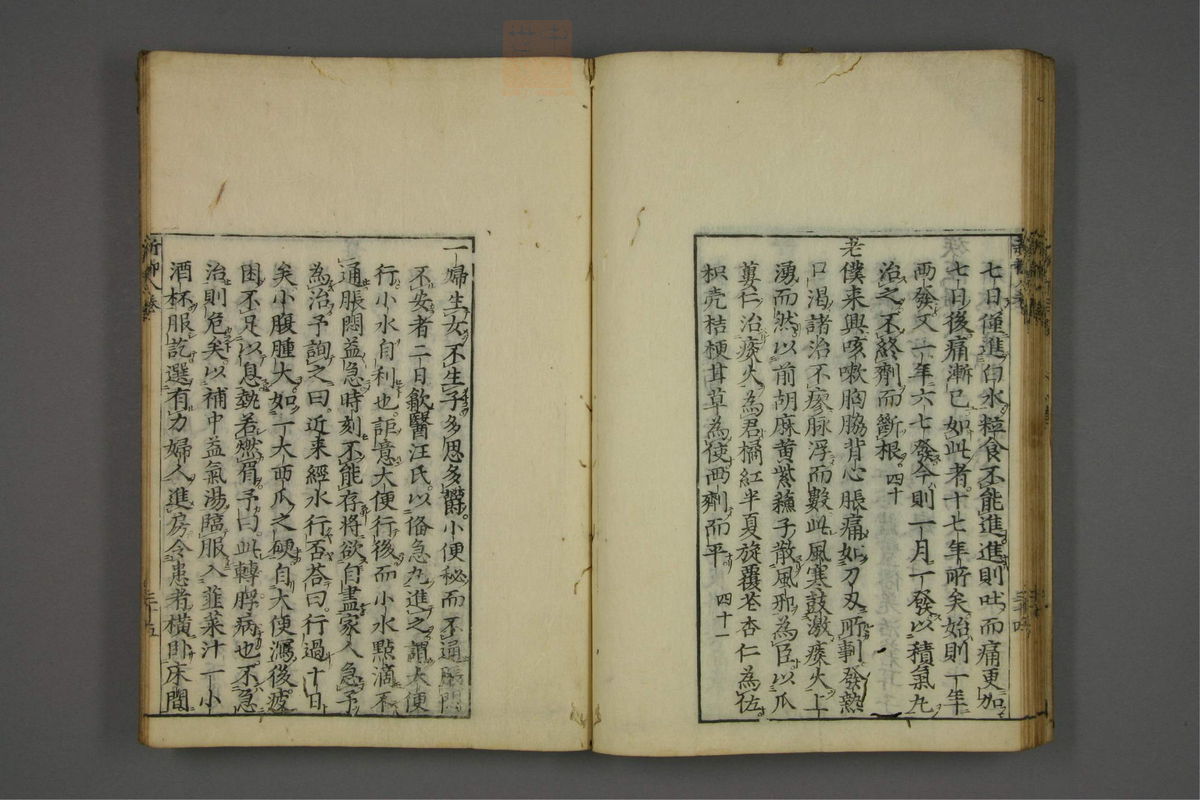 七日僅進白水粒食不能進進則吐而痛更加
七日後痛漸已如此者十七年所矣始則一年
兩發又一年六七發今則一月一發以積氣丸
治之不終劑而斷根 四十
老僕來興咳嗽胸脇背心脹痛如刀刃所刺發熱
口渴諸治不瘳脉浮而數此風寒鼓激痰火上
湧而然以前胡麻黄紫蘓子散風邪為臣以瓜
蔞仁治痰火為君橘紅半夏旋覆花杏仁為佐
枳壳桔梗甘草為使兩劑而平 四十一
一婦生女不生子多思多欝小便秘而不通脹悶
不安者二日歙醫汪氏以俻急丸進之謂大便
行小水自利也詎意大便行後而小水點滴不
通脹悶益急時刻不能存将欲自盡家人急予
為治予詢之曰近来經水行否荅曰行過十日
矣小腹腫大如一大西瓜之硬自大便瀉後疲
困不足以息勢若燃眉予曰此轉脬病也不急
治則危矣以補中益氣湯臨服入韮菜汁一小
酒杯服訖選有力婦人進房令患者横卧床間